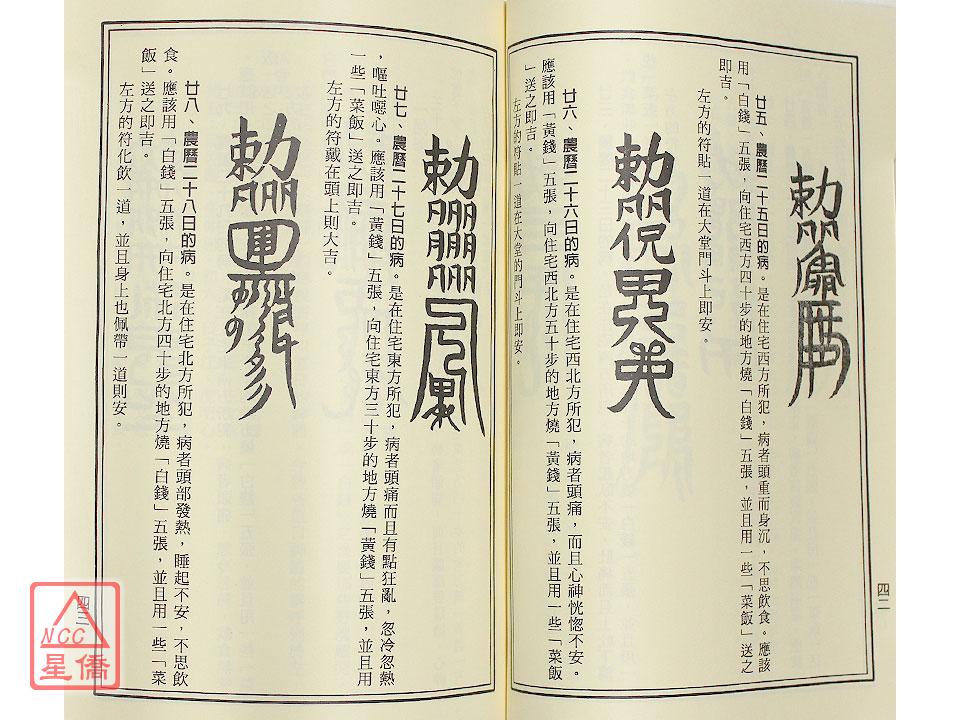 廿五、農曆二十五日的病。是在住宅西方所犯，病者頭重而身沉，不思飲食。應該
用「白錢」五張，向住宅西方四十步的地方燒「白錢」五張，並且用一些「菜飯」送之
即吉。
左方的符貼一道在大堂門斗上即安。
廿六、農曆二十六日的病。是在住宅西北方所犯，病者頭痛，而且心神恍惚不安。
應該用「黃錢」五張，向住宅西北方五十步的地方燒「黃錢」五張，並且用一些「菜飯
」送之即吉。
左方的符貼一道在大堂的門斗上即安。
四二
廿七、農曆二十七日的病。是在住宅東方所犯，病者頭痛而且有點狂亂，忽冷忽熱
，嘔吐噁心。應該用「黃錢」五張，向住宅東方三十步的地方燒「黃錢」五張，並且用
一些「菜飯」送之即吉。
左方的符戴在頭上則大吉。
廿八、農曆二十八日的病。是在住宅北方所犯，病者頭部發熱，睡起不安，不思飲
食。應該用「白錢」五張，向住宅北方四十步的地方燒「白錢」五張，並且用一些「菜
飯」送之即吉。
左方的符化飲一道，並且身上也佩帶一道則安。
四三
NCC
星僑